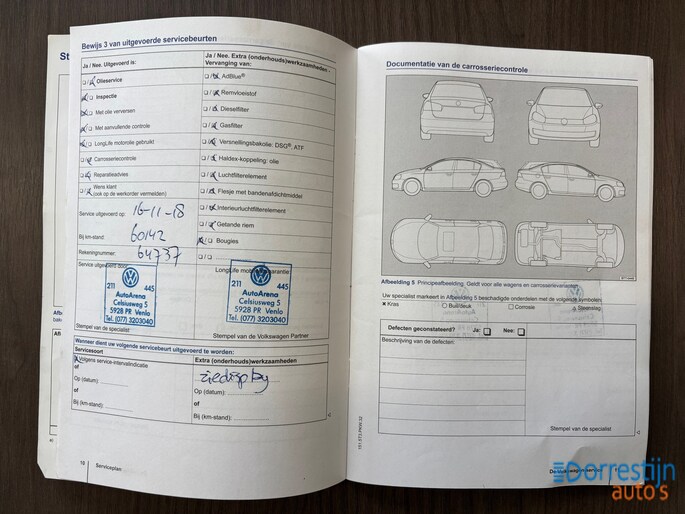 Bewijs 3 van uitgevoerde servicebeurten
Ja / Nee. Uitgevoerd is:
Olieservice
Inspectie
Met olie verversen
Met aanvullende controle
LongLife motorolie gebruikt
Carrosseriecontrole
Reparatieadvies
Wens klant
(ook op de werkorder vermelden)
Service uitgevoerd op: 16-11-18
Bij km-stand: 60142
Rekeningnummer: 64737
Service uitgevoerd door:
211 445
AutoArena
Celsiusweg 5
5928 PR Venlo
Tel. (077) 3203040
Stempel van de specialist
Ja / Nee. Extra (onderhouds)werkzaamheden -
Vervanging van:
AdBlue®
Remvloeistof
Dieselfilter
Gasfilter
Versnellingsbakolie: DSG®, ATF
Haldex-koppeling: olie
Luchtfilterelement
Flesje met bandenafdichtmiddel
Interieurluchtfilterelement
Getande riem
Bougies
LongLife mobiliteitsgarantie
211 445
AutoArena
Celsiusweg 5
5928 PR Venlo
Tel. (077) 3203040
Stempel van de Volkswagen Partner
Wanneer dient uw volgende servicebeurt uitgevoerd te worden:
Servicesoort
Volgens service-intervalindicatie
of
Op (datum):
of
Bij (km-stand):
Extra (onderhouds)werkzaamheden
zie display
Op (datum):
of
Bij (km-stand):
16 Serviceplan
Documentatie van de carrosseriecontrole
Afbeelding 5 Principeafbeelding. Geldt voor alle wagens en carrosserievarianten.
Uw specialist markeert in Afbeelding 5 beschadigde onderdelen met de volgende symbolen:
Kras Buil/deuk Corrosie Steenslag
Defecten geconstateerd? Ja: Nee:
Beschrijving van de defecten:
Stempel van de specialist
Dorrestijn
auto's